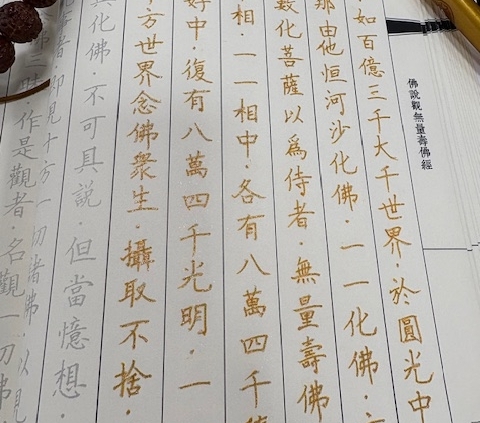 佛說觀無量壽佛經
·如百億三千大千世界·於圓光中
那由他恒河沙化佛·一一化佛·
數化菩薩以爲侍者·無量壽佛
相·一一相中·各有八萬四千
好中·復有八萬四千光明·一
方世界念佛衆生·攝取不捨·
化佛·不可具說·但當憶想·
者·即見十方一切諸佛·以見
作是觀者·名觀一切佛